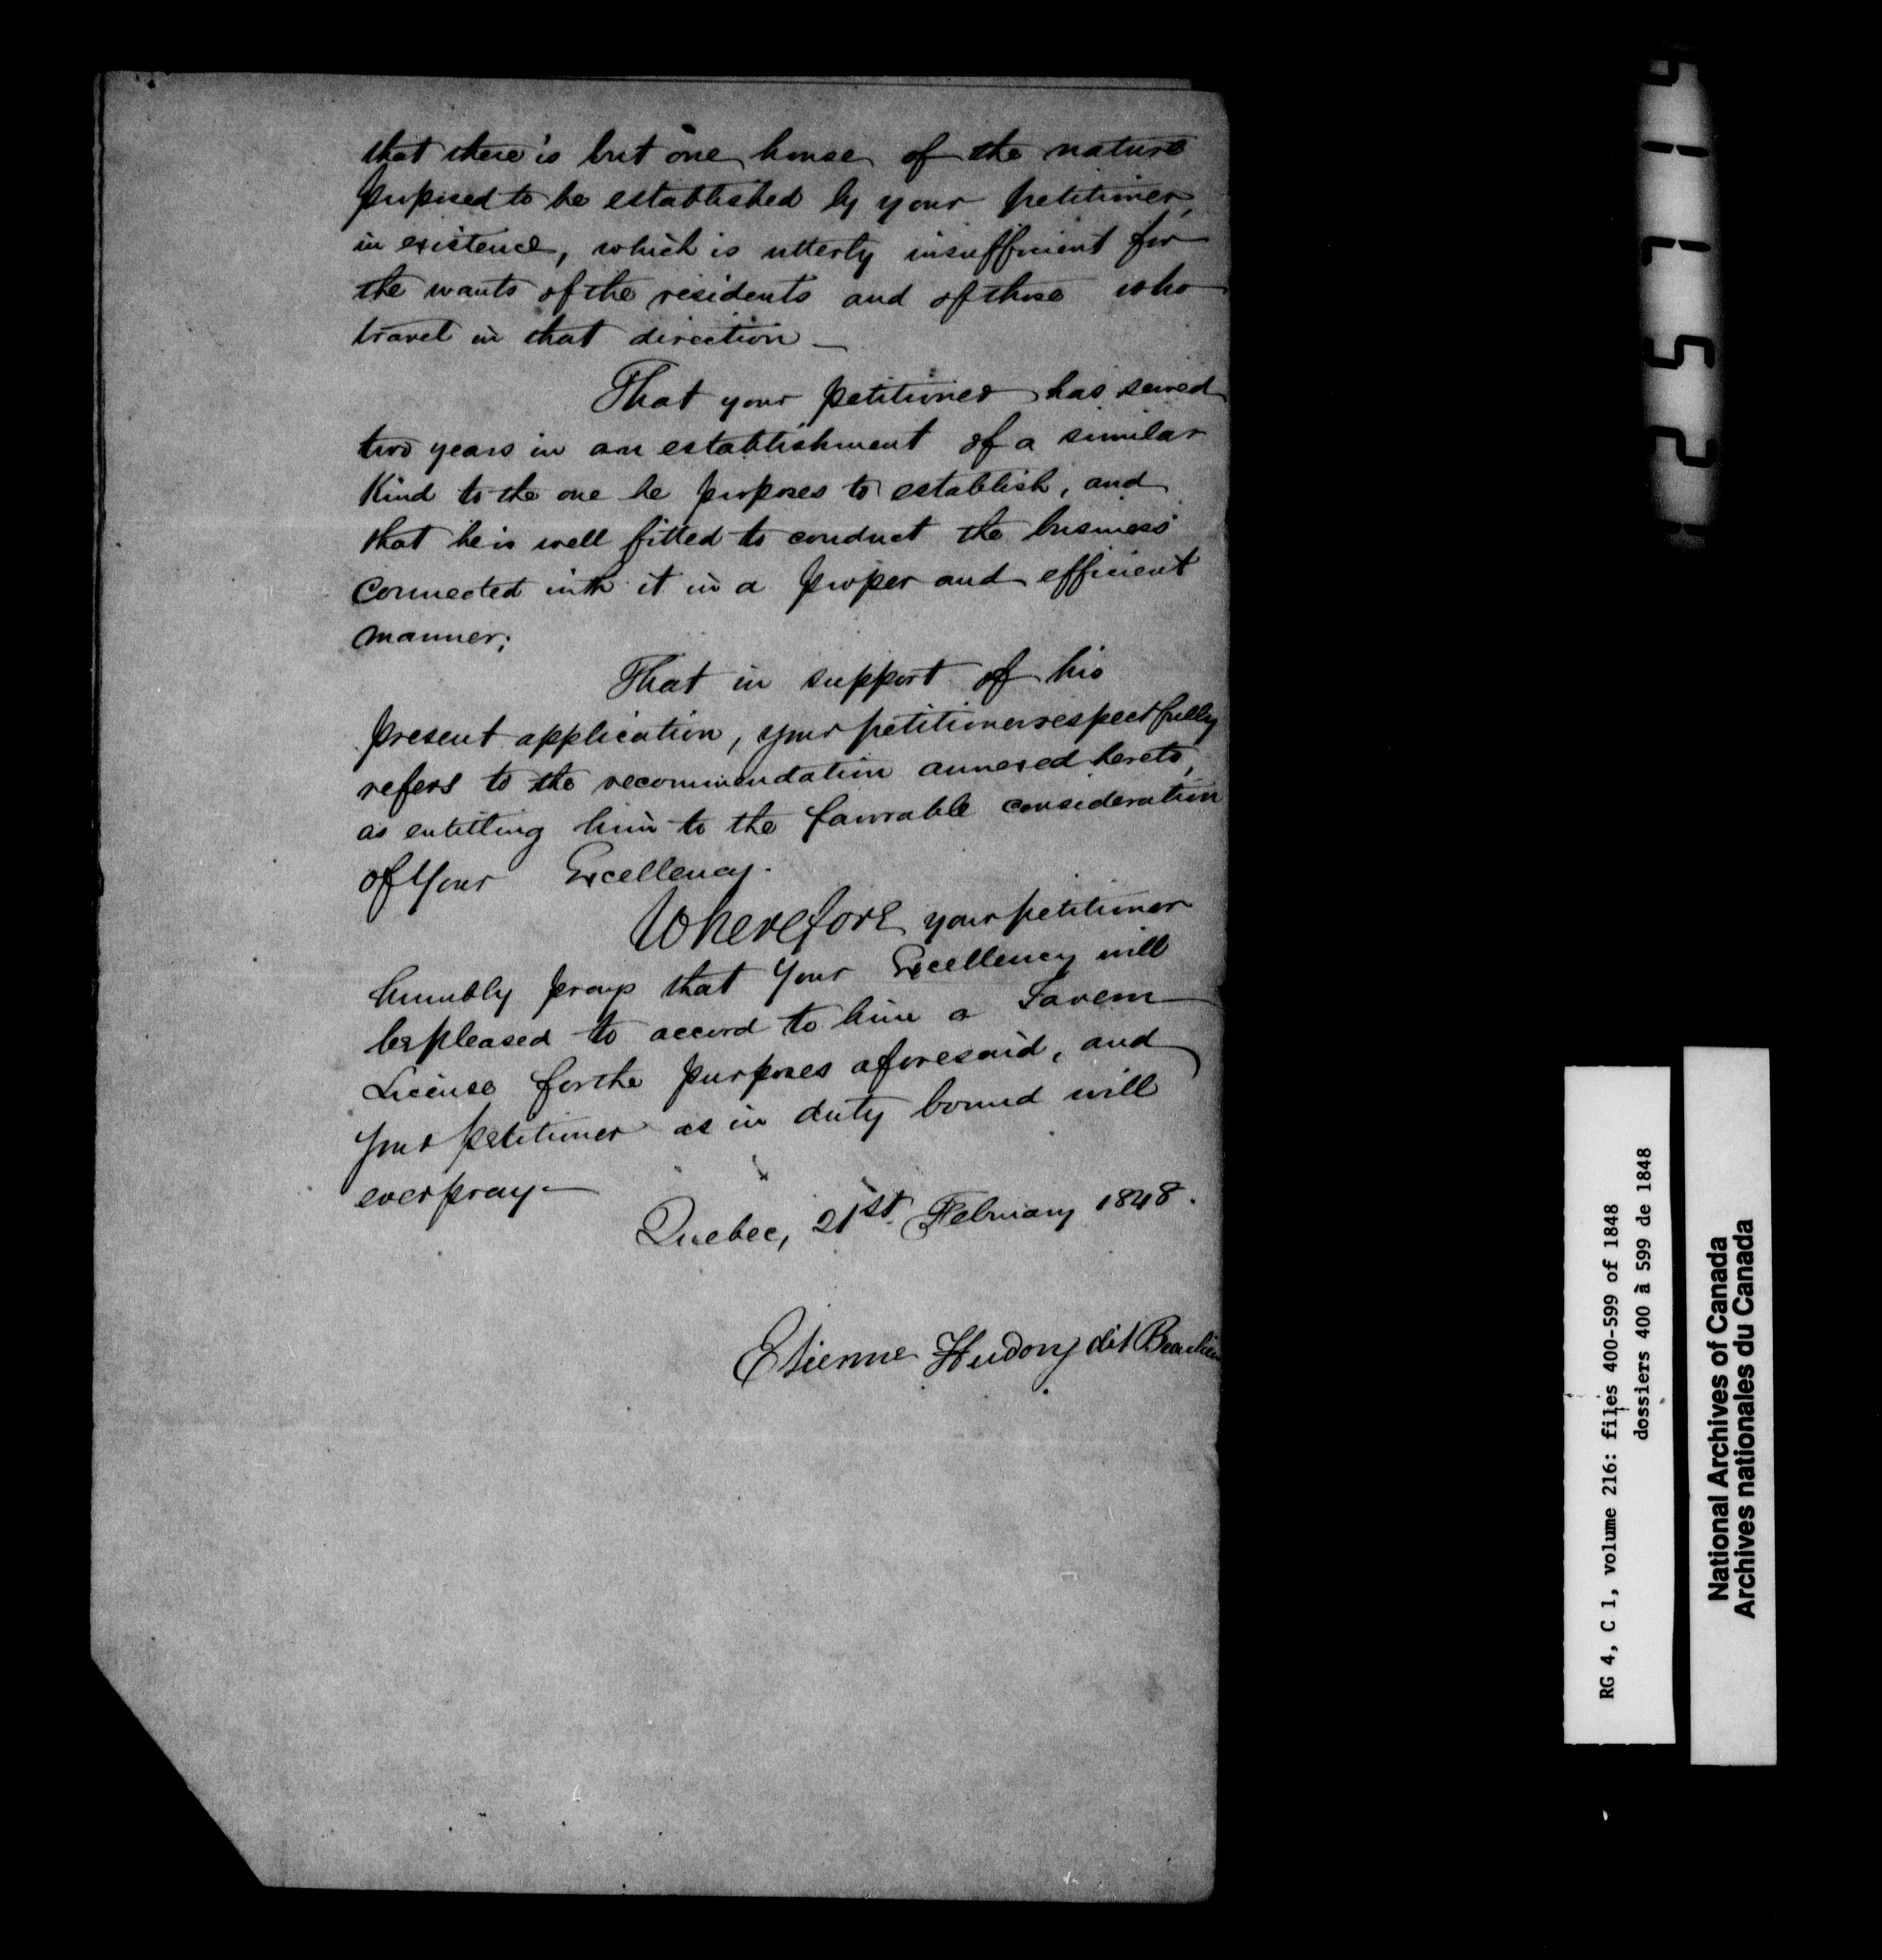 that there is but one house of the nature
proposed to be established by your petitioner,
in existence, which is utterly insufficient for
the wants of the residents and of those who
travel in that direction —
That your petitioner has served
two years in an establishment of a similar
Kind to the one he proposes to establish, and
that he is well fitted to conduct the business
connected with it in a proper and efficient
manner;
That in support of his
present application, your petitioner respectfully
refers to the recommendation annexed hereto,
as entitling him to the favorable consideration
of Your Excellency.
Wherefore your petitioner
humbly prays that Your Excellency will
be pleased to accord to him a Tavern
License for the purposes aforesaid, and
your petitioner as in duty bound will
ever pray —
Quebec, 21st February 1848.
Etienne Hudon dit Beaulieu
RG 4, C 1, volume 216: files 400-599 of 1848
dossiers 400 à 599 de 1848
National Archives of Canada
Archives nationales du Canada